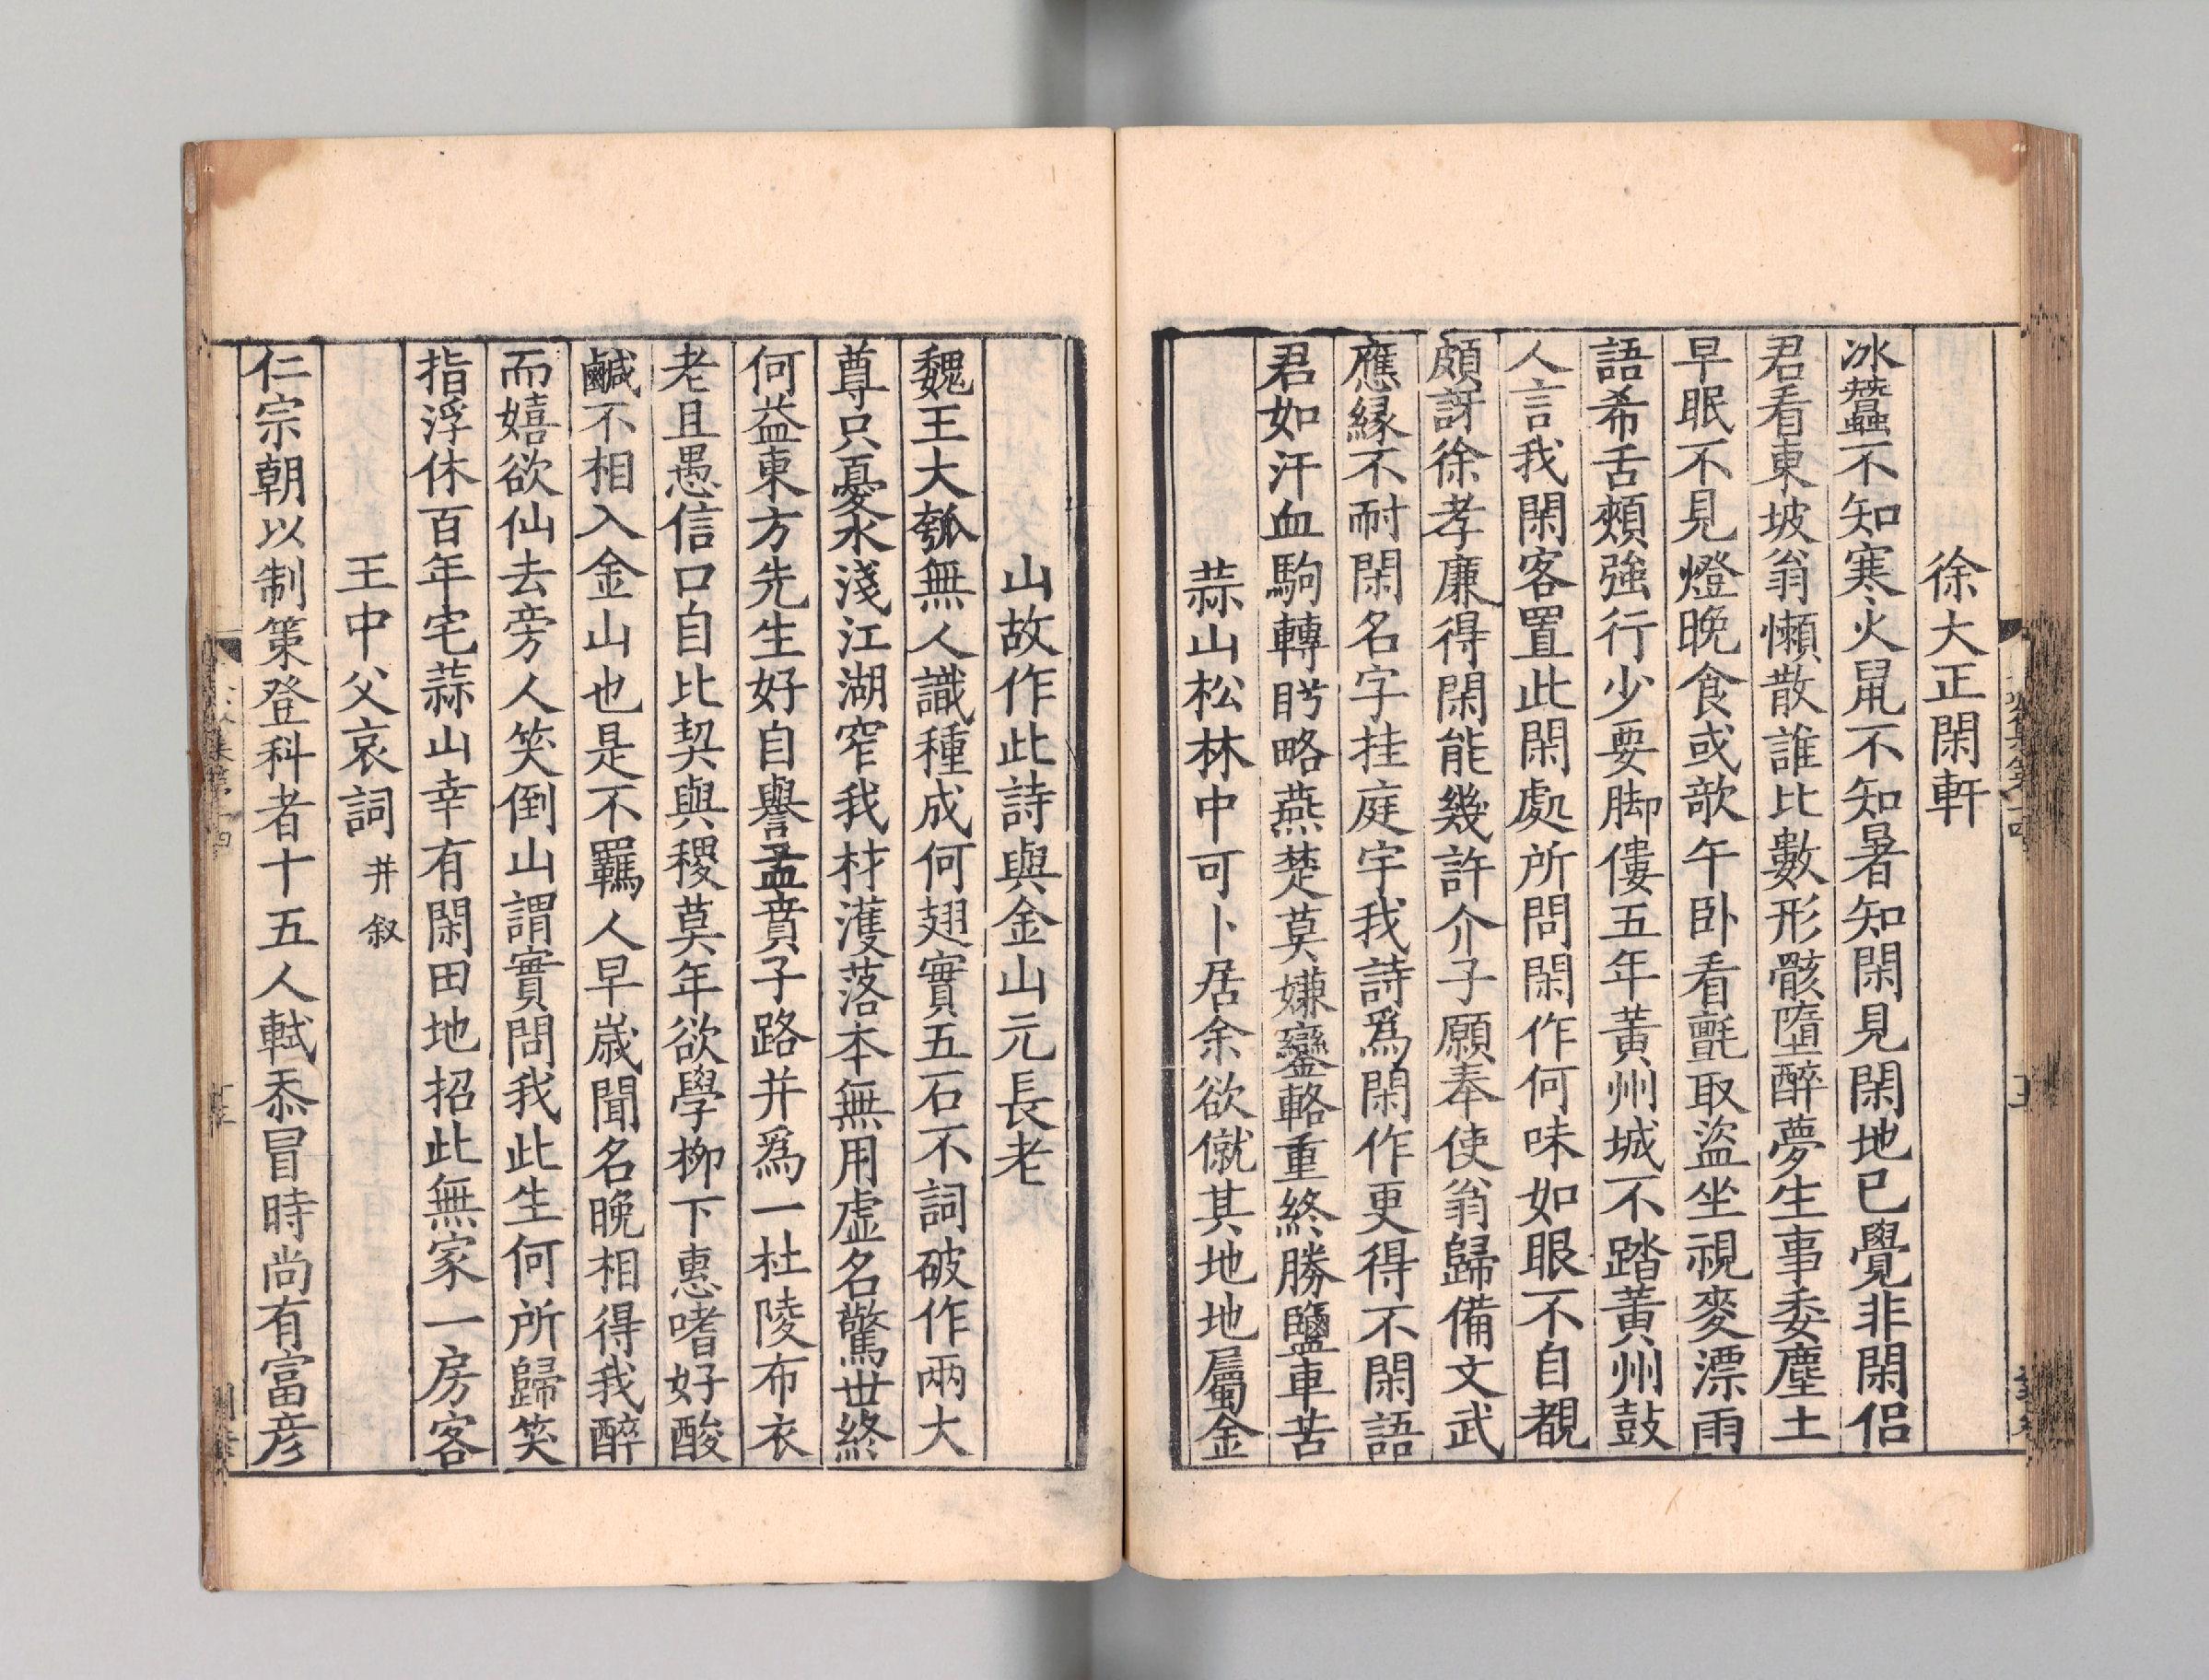 徐大正閑軒
冰蠶不知寒火鼠不知暑知閑見閑地已覺非閑侶
君看東坡翁懶散誰比數形骸墮醉夢生事委塵土
早眠不見燈晚食或歌午卧看氊取盜坐視麥漂雨
語希舌頰強行少要脚僂五年黃州城不踏黃州鼓
人言我閑客置此閑處所問閑作何味如眼不自覩
頗訝徐孝廉得閑能幾許介子願奉使翁歸備文武
應緣不耐閑名字挂庭宇我詩爲閑作更得不閑語
君如汗血駒轉眄略燕楚莫嫌鑾輅重終勝鹽車苦
蒜山松林中可卜居余欲僦其地地屬金
山故作此詩與金山元長老
魏王大瓠無人識種成何翅實五石不詞破作兩大
尊只憂水淺江湖窄我材濩落本無用虛名驚世終
何益東方先生好自譽孟賁子路并爲一杜陵布衣
老且愚信口自比契與稷莫年欲學柳下惠嗜好酸
鹹不相入金山也是不羈人早歲聞名晚相得我醉
而嬉欲仙去旁人笑倒山謂實問我此生何所歸笑
指浮休百年宅蒜山幸有閑田地招此無家一房客
王中父哀詞并叙
仁宗朝以制策登科者十五人軾忝冒時尚有富彥